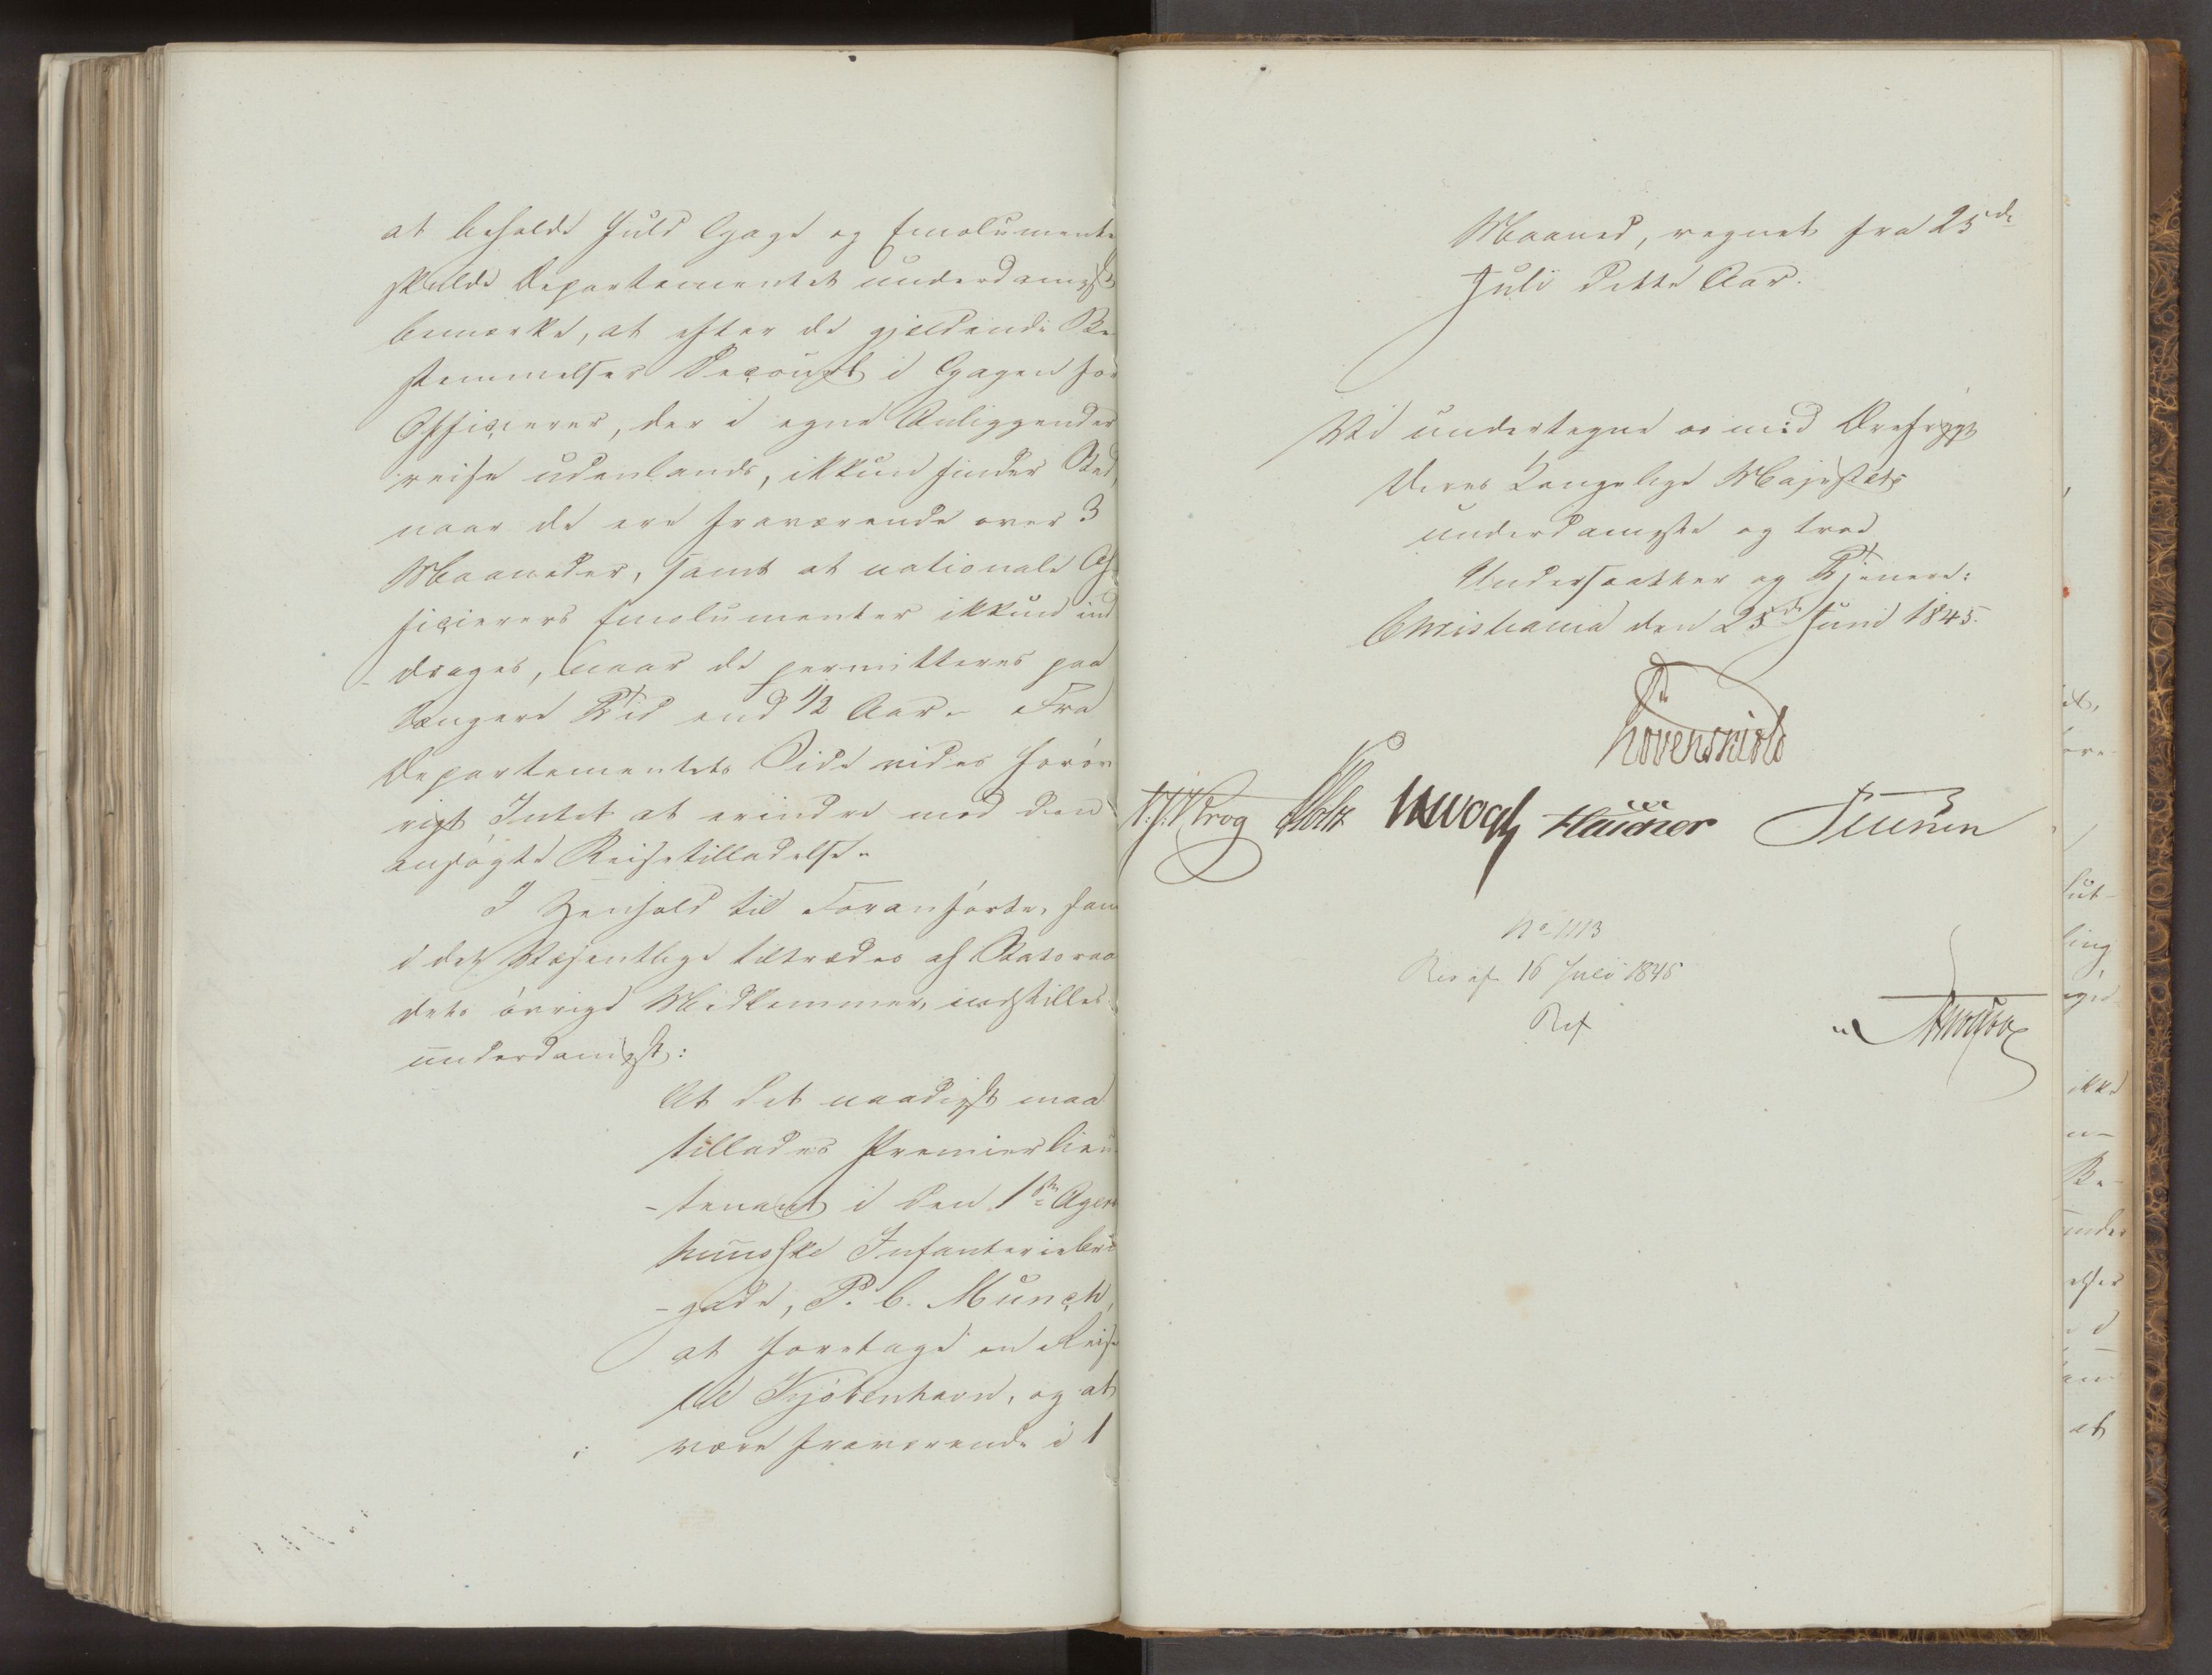 at beholde fuld Gage og Emolumenter
skulde Departementet underdanigst
bemærke, at efter de gjældende Be
stemmelser Decourt i Gagen for
Officierer, der i egne Anliggender
reise udenlands, ikkun finder Sted,
naar de ere fraværende over 3
Maaneder, samt at nationale Of
ficierers Emolumenter ikkun ind
drages, naar de permitteres paa
længere Tid end 1/2 Aar. Fra
Departementets Side vides forøv
rigt Intet at erindre mod den
ansøgte Reisetilladelse.
I Henhold til Foranførte, som
i det Væsentlige tiltrædes af Statsraa
dets øvrige Medlemmer, indstilles
underdanigst:
At det naadigst maa
tillades Premierlieu
-tenant i den 1ste Agers
huusske Infanteribri
-gade, P. C. Munch,
at foretage en Reise
til Kjøbenhavn, og at
være fraværende i 1
Maaned, regnet fra 25de
Juli dette Aar.
Vi undertegne os med Ærefrygt
Deres Kongelige Majestæts
underdanigste og troe
Undersaatter og Tjenere:
Christiania den 25de Juni 1845.
Løvenskiold
Krog Holst Vogt
No 1113
Res af 16 Juli 1845